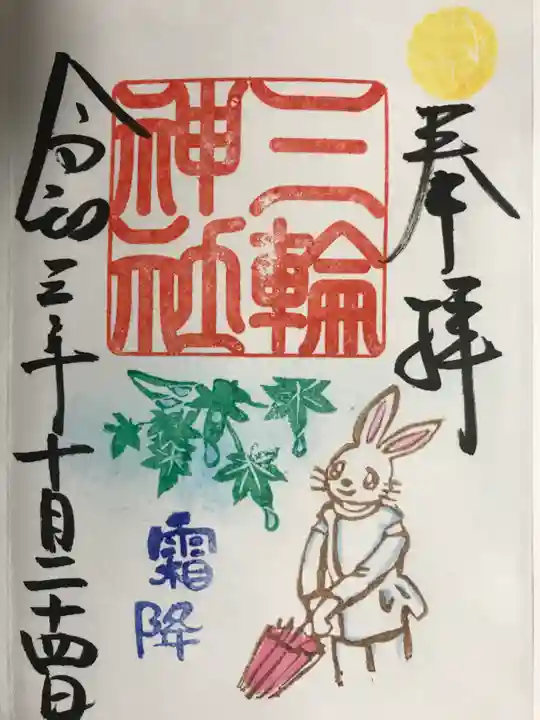 奉拝
三輪
神社
霜降
令和三年十月二十四日